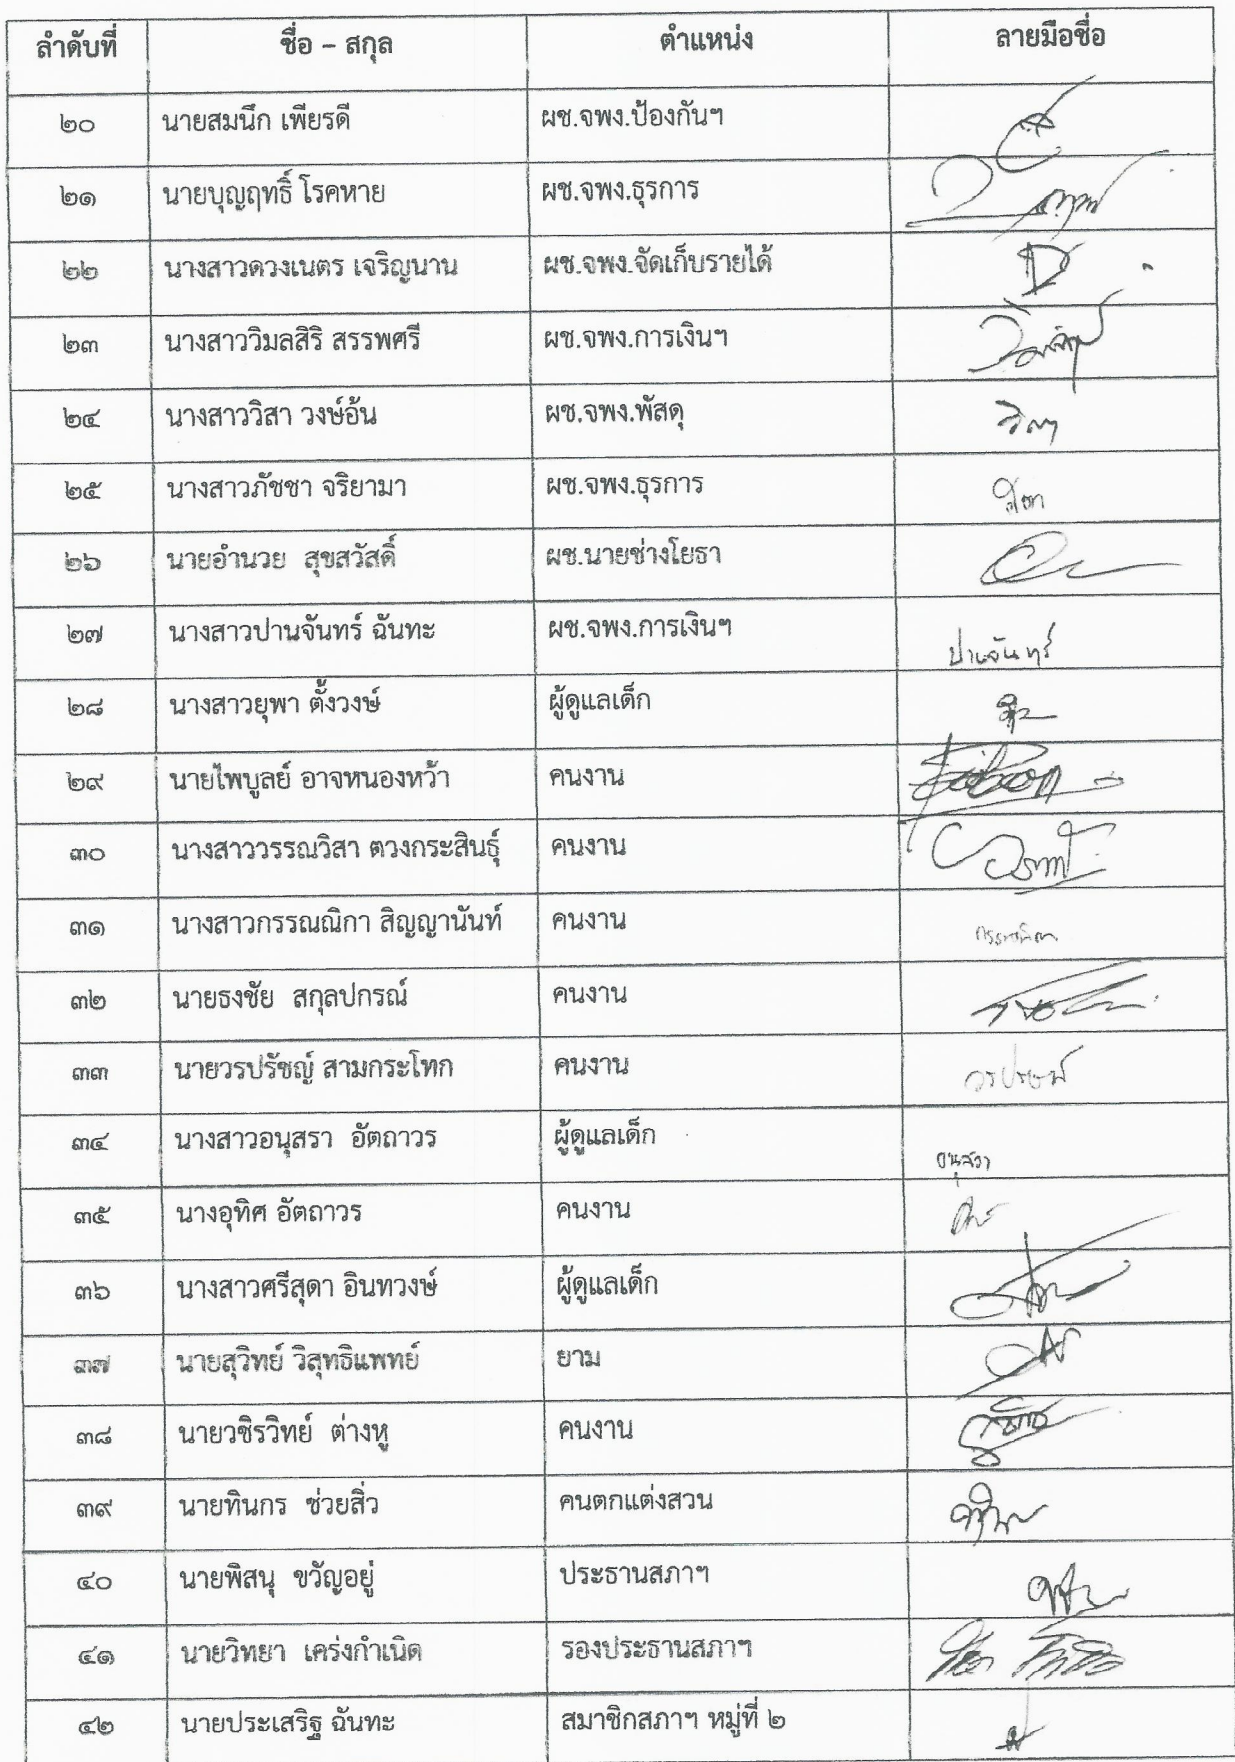 ลำดับที่ ชื่อ – สกุล ตำแหน่ง ลายมือชื่อ
๒๐ นายสมนึก เพียรดี ผช.จพง.ป้องกันฯ
๒๑ นายบุญฤทธิ์ โรคหาย ผช.จพง.ธุรการ
๒๒ นางสาวดวงเนตร เจริญนาน ผช.จพง.จัดเก็บรายได้
๒๓ นางสาววิมลสิริ สรรพศรี ผช.จพง.การเงินฯ
๒๔ นางสาววิสา วงษ์อ้น ผช.จพง.พัสดุ
๒๕ นางสาวภัชชา จริยามา ผช.จพง.ธุรการ
๒๖ นายอำนวย สุขสวัสดิ์ ผช.นายช่างโยธา
๒๗ นางสาวปานจันทร์ ฉันทะ ผช.จพง.การเงินฯ ปานจันทร์
๒๘ นางสาวยุพา ตั้งวงษ์ ผู้ดูแลเด็ก
๒๙ นายไพบูลย์ อาจหนองหว้า คนงาน
๓๐ นางสาววรรณวิสา ตวงกระสินธุ์ คนงาน
๓๑ นางสาวกรรณณิกา สิญญานันท์ คนงาน
๓๒ นายธงชัย สกุลปกรณ์ คนงาน
๓๓ นายวรปรัชญ์ สามกระโทก คนงาน
๓๔ นางสาวอนุสรา อัตถาวร ผู้ดูแลเด็ก อนุสรา
๓๕ นางอุทิศ อัตถาวร คนงาน
๓๖ นางสาวศรีสุดา อินทวงษ์ ผู้ดูแลเด็ก
๓๗ นายสุวิทย์ วิสุทธิแพทย์ ยาม
๓๘ นายวชิรวิทย์ ต่างหู คนงาน
๓๙ นายทินกร ช่วยสิ่ว คนตกแต่งสวน
๔๐ นายพิสนุ ขวัญอยู่ ประธานสภาฯ
๔๑ นายวิทยา เคร่งกำเนิด รองประธานสภาฯ
๔๒ นายประเสริฐ ฉันทะ สมาชิกสภาฯ หมู่ที่ ๒